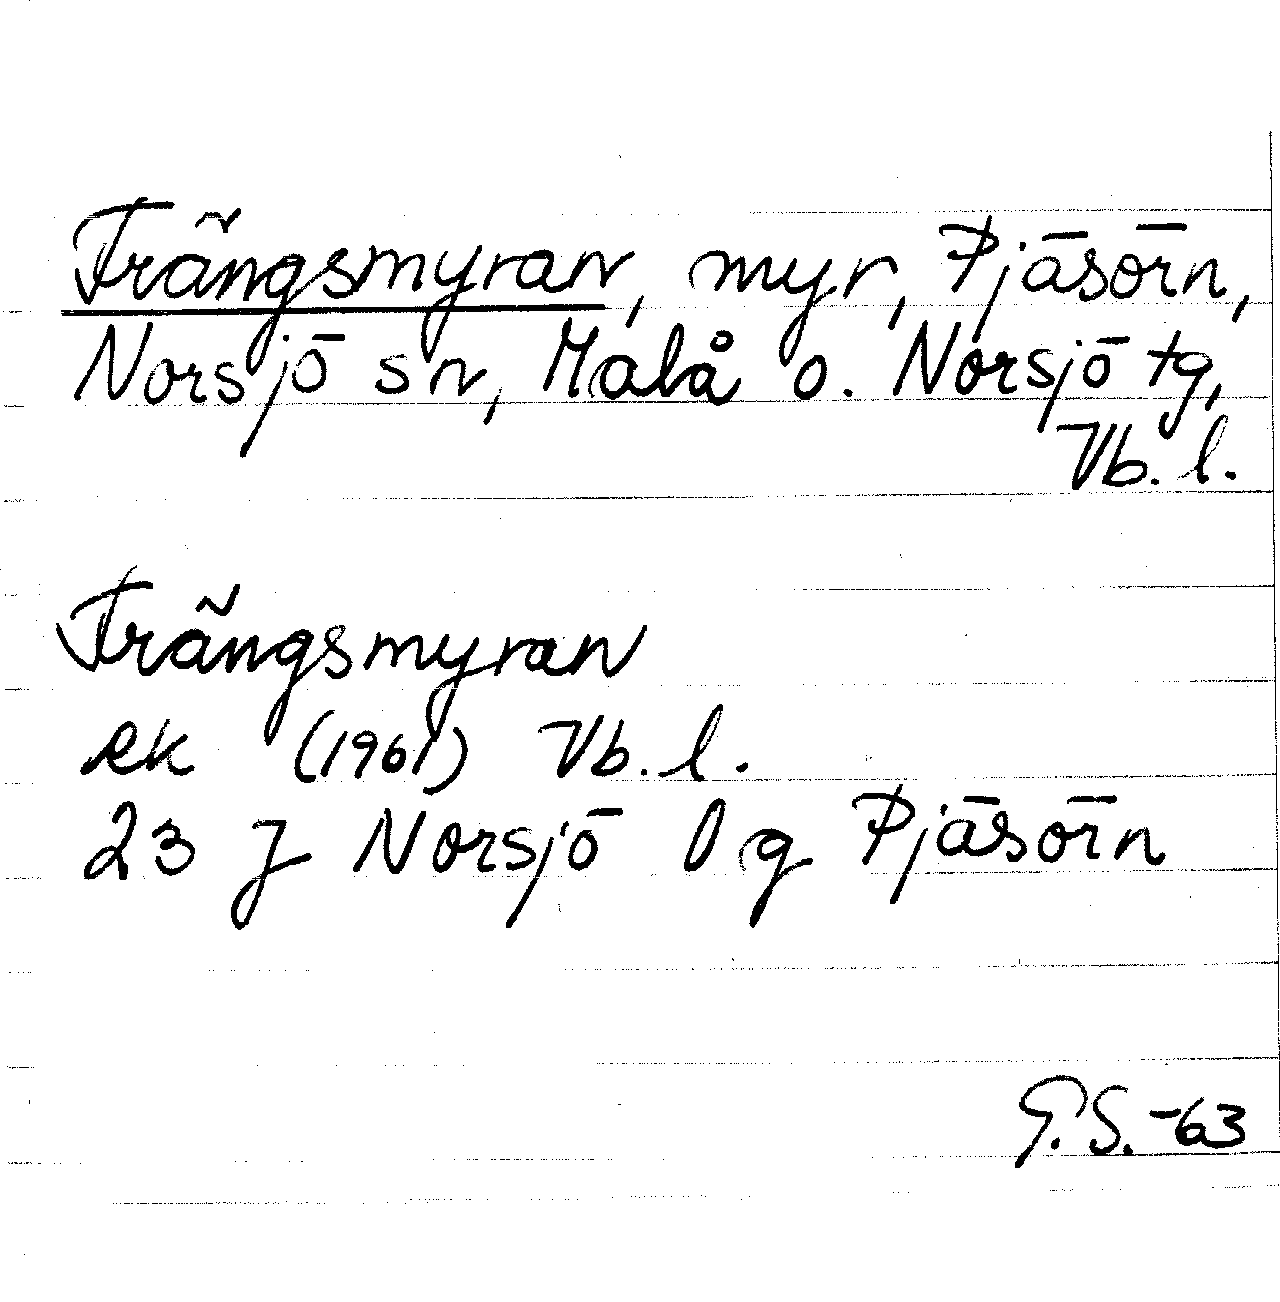 Trängsmyran, myr, Pjäsörn,
Norsjö sn, Malå o. Norsjö tg,
Vb. l.
Trängsmyran
ek (1961) Vb. l.
23 J Norsjö lg Pjäsörn
G.S. -63